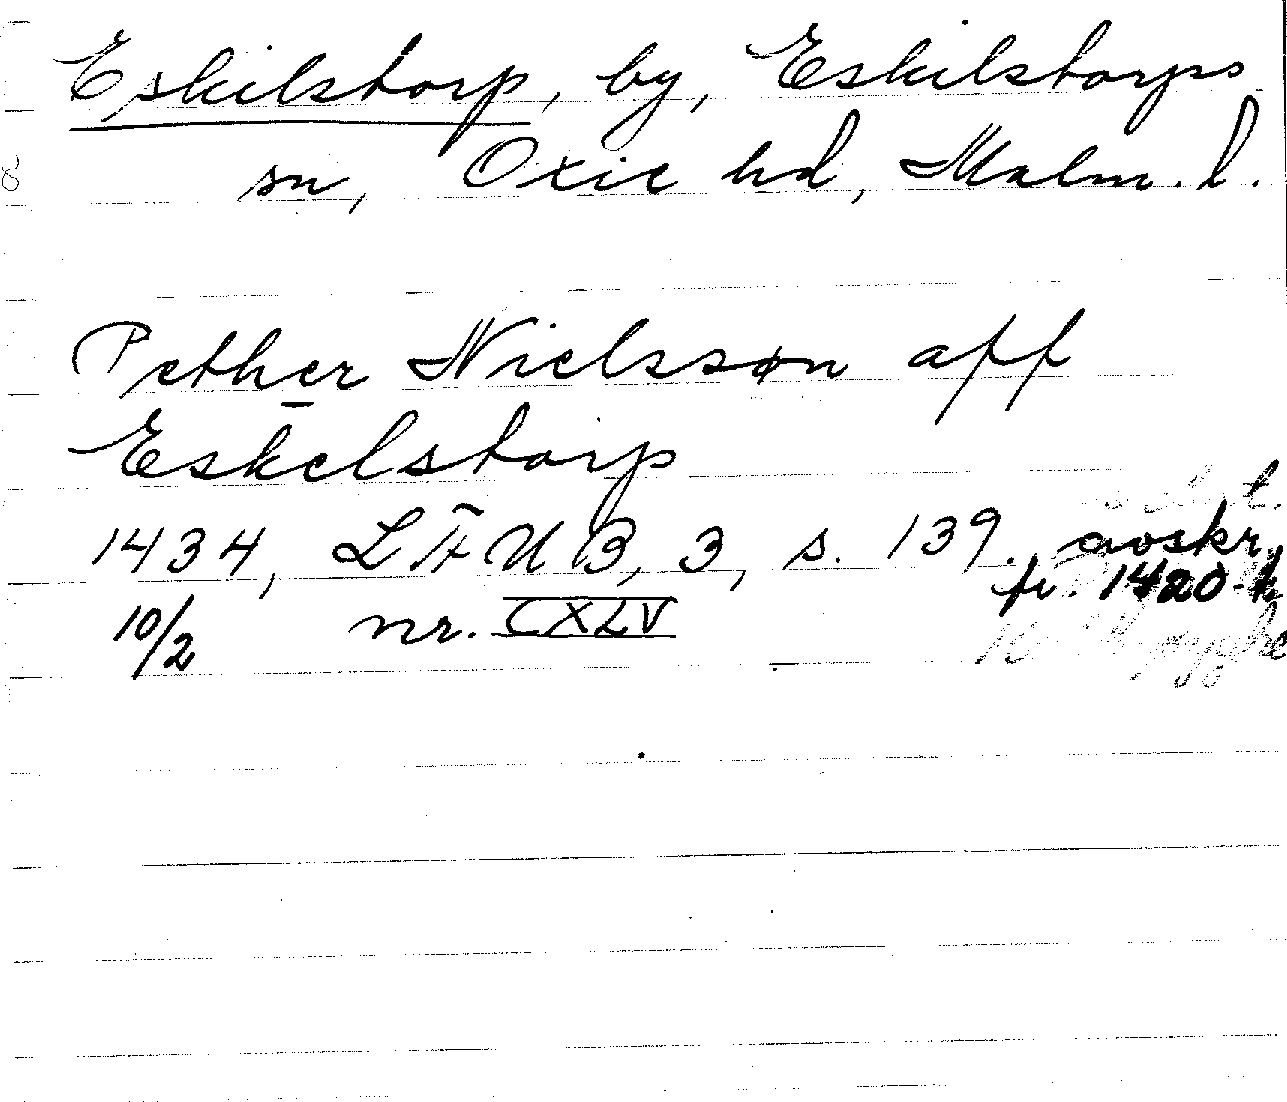 Eskilstorp, by, Eskilstorps
sn, Oxie hd, Malm. l.
Pether Nielssøn aff
Eskelstorp
1434, LÄUB, 3, s. 139. avskr.
10/2 nr. CXLV fr. 1420-t